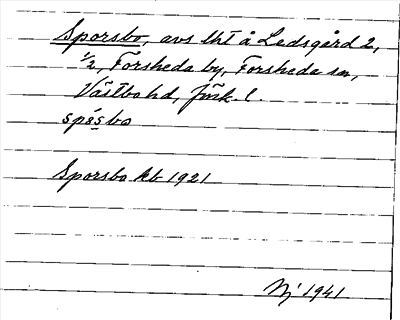 Sporsbo, avs lht å Ledsgård 2,
1/2, Forsheda by, Forsheda sn,
Västbo hd, Jönk. l.
spo͕sbo
Sporsbo kb 1921
Nj 1941